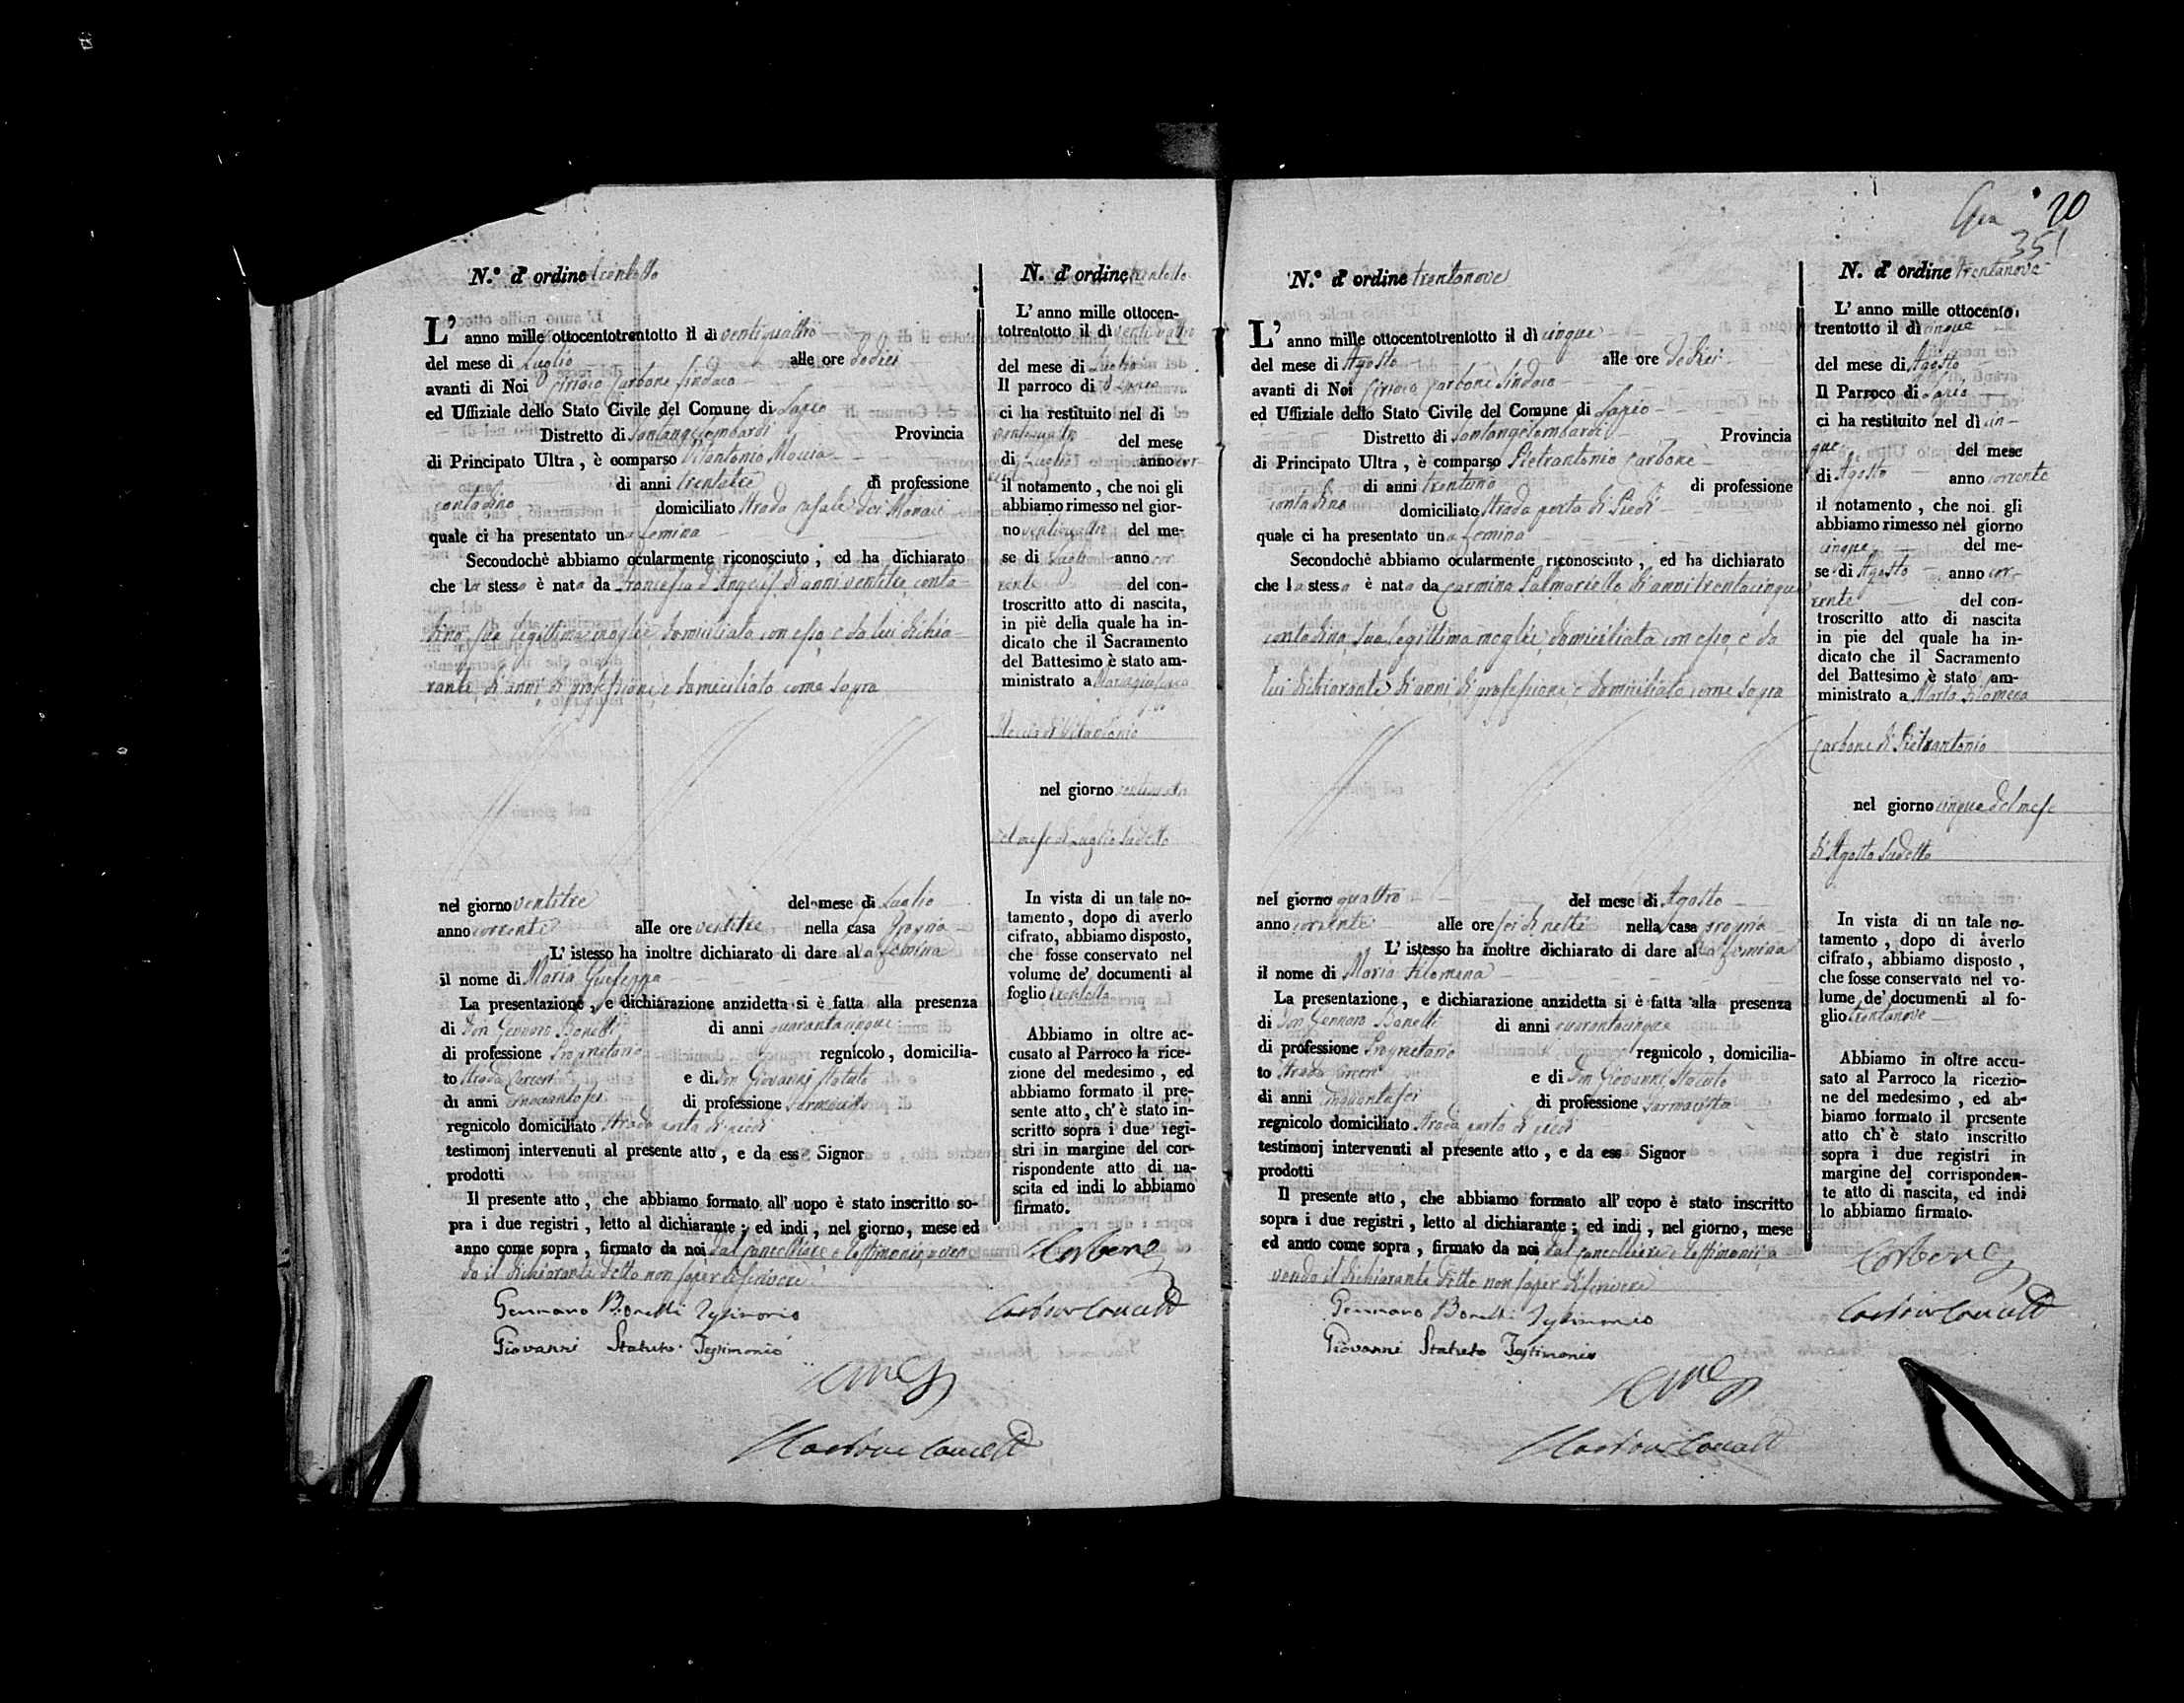 N.° d'ordine trentotto
L' anno mille ottocentotrentotto il di ventiquattro
del mese di Luglio alle ore dodici
avanti di Noi Ciriaco Carbone Sindaco
ed Uffiziale dello Stato Civile del Comune di Lapio
Distretto di Santangelombardi Provincia
di Principato Ultra , è comparso Vitantonio Moccia
di anni trentatre di professione
contadino domiciliato Strada Casale
quale ci ha presentato una femina
Secondochè abbiamo ocularmente riconosciuto , ed ha dichiarato
che la stessa è nata da Francesca d'Angelis di anni ventitre, conta-
dina, sua legittima moglie domiciliata con esso, e da lui dichia-
rante, di anni di professione, e domiciliato come sopra
nel giorno ventitre del mese di Luglio
anno corrente alle ore ventitre nella casa propria
L' istesso ha inoltre dichiarato di dare alla femina
il nome di Maria Giuseppa
La presentazione , e dichiarazione anzidetta si è fatta alla presenza
di Don Gennaro Bonelli di anni quarantacinque
di professione Proprietario regnicolo , domicilia-
to Strada Carceri e di Don Giovanni Statuto
di anni cinquantasei di professione Farmacista
regnicolo domiciliato Strada porta di piedi
testimonj intervenuti al presente atto , e da ess Signor
prodotti
Il presente atto , che abbiamo formato all' uopo è stato inscritto so-
pra i due registri , letto al dichiarante ; ed indi , nel giorno, mese ed
anno come sopra , firmato da noi dal Cancelliere e testimonj, aven-
do il dichiarante detto non saper scrivere
Gennaro Bonelli Testimonio
Giovanni Statuto Testimonio
Carbone
N. d' ordine trentotto
L' anno mille ottocen-
totrentotto il dì ventiquattro
del mese di Luglio
Il parroco di Lapio
ci ha restituito nel di
ventiquattro del mese
di Luglio anno cor-
rente
il notamento , che noi gli
abbiamo rimesso nel gior-
no ventiquattro del me-
se di Luglio anno cor
rente del con-
troscritto atto di nascita,
in piè della quale ha in-
dicato che il Sacramento
del Battesimo è stato am-
ministrato a Maria Giuseppa
Moccia di Vitantonio
nel giorno ventiquattro
del mese di Luglio sudetto
In vista di un tale no-
tamento , dopo di averlo
cifrato, abbiamo disposto,
che fosse conservato nel
volume de' documenti al
foglio trentotto
Abbiamo in oltre ac-
cusato al Parroco la rice-
zione del medesimo , ed
abbiamo formato il pre-
sente atto , ch' è stato in-
scritto sopra i due regi-
stri in margine del cor-
rispondente atto di na-
scita ed indi lo abbiamo
firmato.
Carbone
20
351
N.° d' ordine trentanove
L' anno mille ottocentotrentotto il di cinque
del mese di Agosto alle ore dodici
avanti di Noi Ciriaco Carbone Sindaco
ed Uffiziale dello Stato Civile del Comune di Lapio
Distretto di Santangelombardi Provincia
di Principato Ultra , è comparso Pietrantonio Carbone
di anni trentuno di professione
contadino domiciliato Strada porta di Piedi
quale ci ha presentato una femina
Secondochè abbiamo ocularmente riconosciuto , ed ha dichiarato
che la stessa è nata da Carmina Palmariello di anni trentacinque
contadina, sua legittima moglie, domiciliata con esso, e da
lui dichiarante di anni, di professione, e domiciliato come sopra
nel giorno quattro del mese di Agosto
anno corrente alle ore sei di notte nella casa propria
L' istesso ha inoltre dichiarato di dare alla femina
il nome di Maria Filomena
La presentazione, e dichiarazione anzidetta si è fatta alla presenza
di Don Gennaro Bonelli di anni quarantacinque
di professione Proprietario regnicolo , domicilia-
to Strada Carceri e di Don Giovanni Statuto
di anni cinquantasei di professione Farmacista
regnicolo domiciliato Strada porta di piedi
testimonj intervenuti al presente atto , e da ess Signor
prodotti
Il presente atto , che abbiamo formato all' uopo è stato inscritto
sopra i due registri , letto al dichiarante ; ed indi , nel giorno, mese
ed anno come sopra , firmato da noi dal Cancelliere e testimonj, a-
vendo il dichiarante detto non saper di scrivere
Gennaro Bonelli Testimonio
Giovanni Statuto Testimonio
Carbone
N. d' ordine trentanove
L' anno mille ottocento
trentotto il dì cinque
del mese di Agosto
Il Parroco di Lapio
ci ha restituito nel dì cin-
que del mese
di Agosto anno corrente
il notamento , che noi gli
abbiamo rimesso nel giorno
cinque del me-
se di Agosto anno cor-
rente del con-
troscritto atto di nascita
in pie del quale ha in-
dicato che il Sacramento
del Battesimo è stato am-
ministrato a Maria Filomena
Carbone di Pietrantonio
nel giorno cinque del mese
di Agosto sudetto
In vista di un tale no-
tamento , dopo di averlo
cifrato, abbiamo disposto ,
che fosse conservato nel vo-
lume de' documenti al fo-
glio trentanove
Abbiamo in oltre accu-
sato al Parroco la ricezio-
ne del medesimo , ed ab-
biamo formato il presente
atto ch' è stato inscritto
sopra i due registri in
margine del corrisponden-
te atto di nascita, ed indi
lo abbiamo firmato.
Carbone